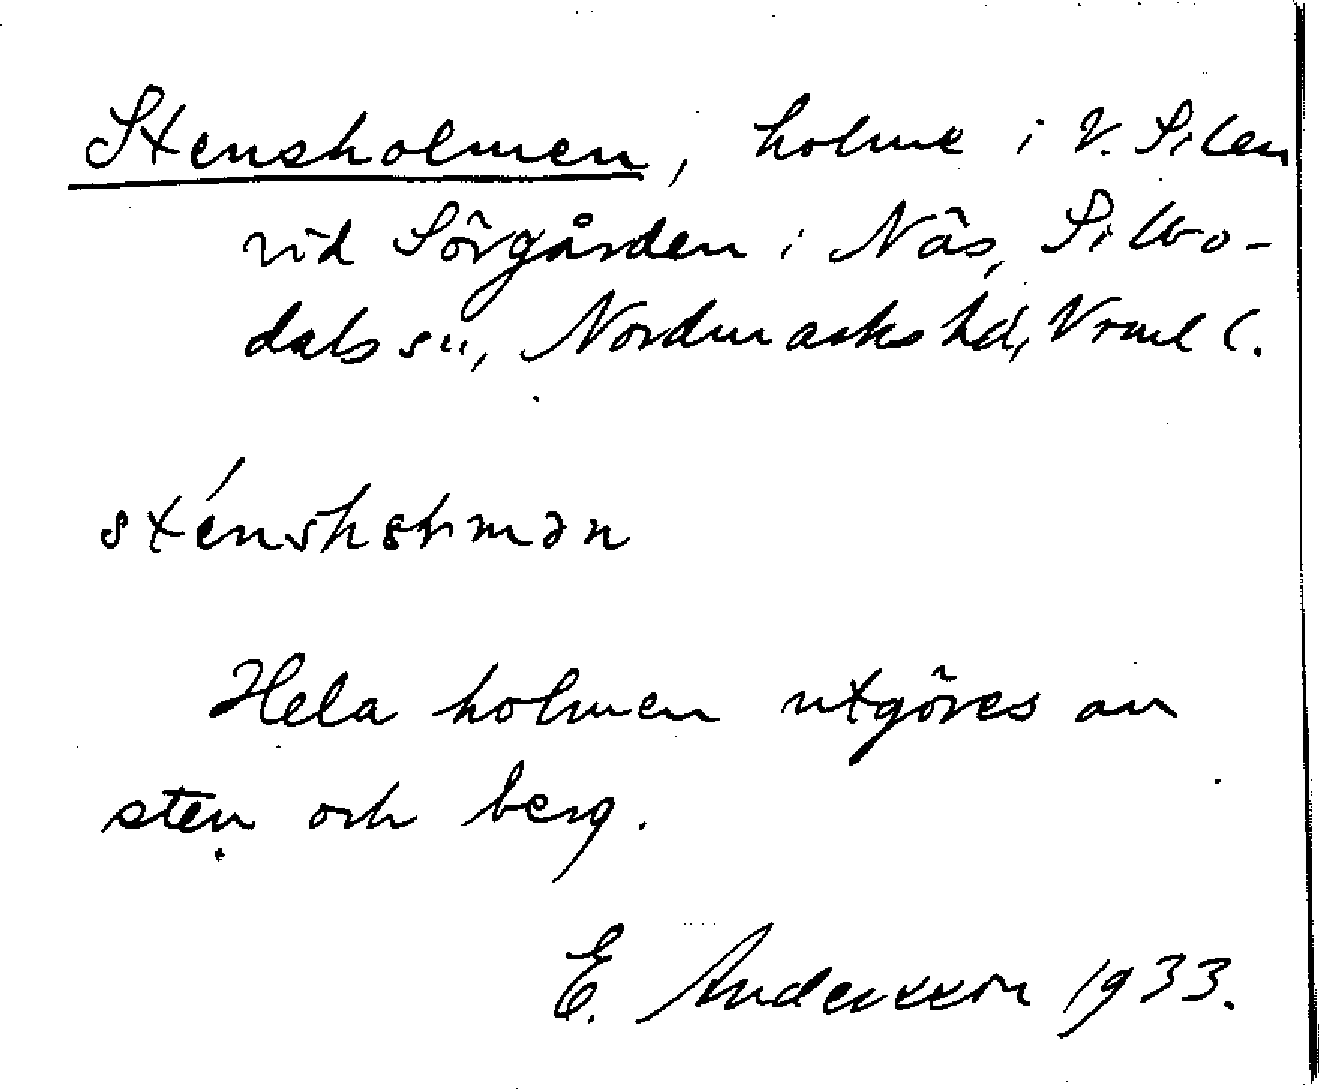 Stensholmen, holme i V. Silen
vid Sörgården i Näs, Silbo-
dals sn, Nordmarks hd, Vrml l.
Hela holmen utgöres av
sten och berg.
E. Andersson 1933.